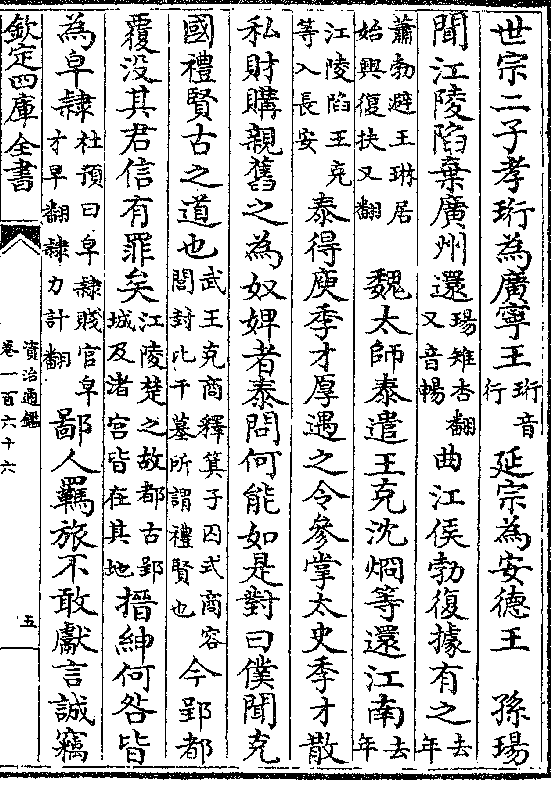 世宗二子孝珩為廣寧王珩音行延宗為安德王 孫瑒
聞江陵陷棄廣州還瑒雉杏翻又音暢曲江侯勃復據有之去年
蕭勃避王琳居始興復扶又翻 魏太師泰遣王克沈烱等還江南去年
江陵陷王克等入長安泰得庾季才厚遇之令參掌太史季才散
私財購親舊之為奴婢者泰問何能如是對曰僕聞克
國禮賢古之道也武王克商釋箕子囚式商容閭封比干墓所謂禮賢也今郢都
覆没其君信有罪矣江陵楚之故都古郢城及渚宫皆在其地搢紳何咎皆
為皁隸杜預曰皁隸賤官皁才早翻隸力計翻鄙人羈旅不敢獻言誠竊
欽定四庫全書
資治通鑑
卷一百六十六
五